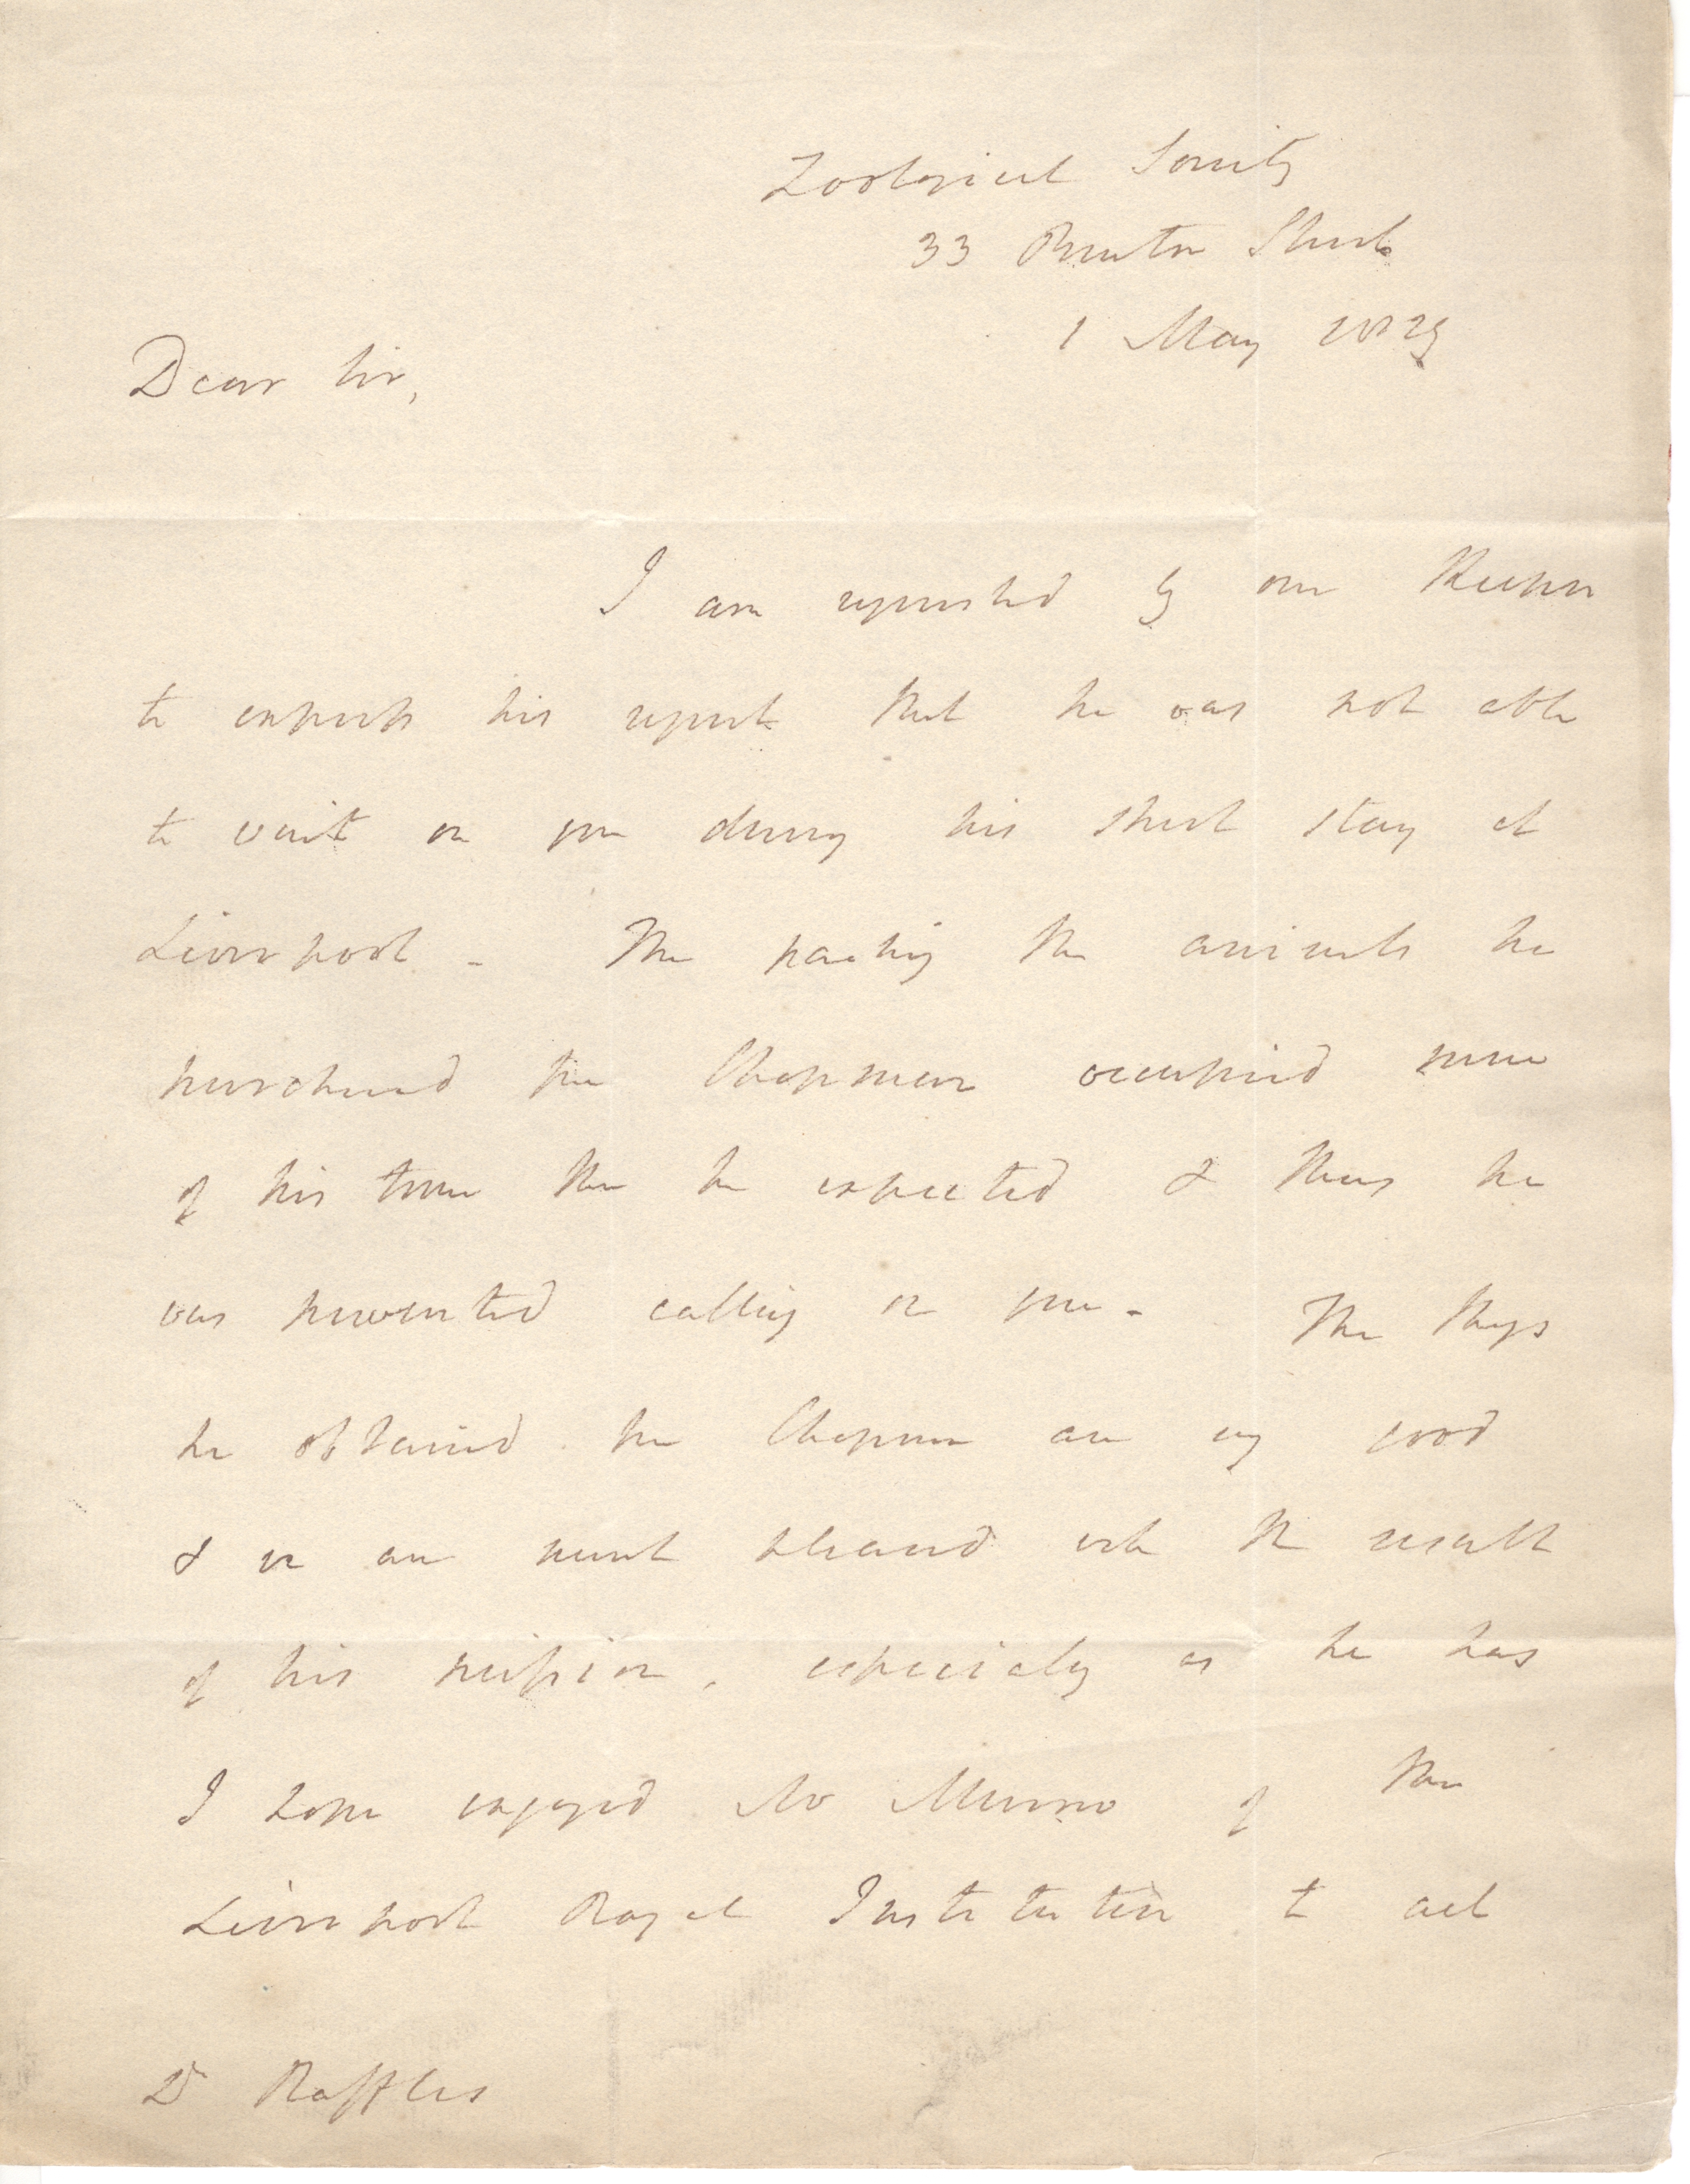 Zoological Society
33 Bruton Street
1 May 1829
Dear Sir,
I am requested by our Keeper
to express his regret that he was not able
to wait on you during his short stay at
Liverpool - The packing the animals he
purchased from Chapman occupied more
of his time than he expected & thus he
was prevented calling on you - The things
he obtained from Chapman are very good
& we are much pleased with the result
of his mission, especially as he has
I hope engaged Mr Munro of the
Liverpool Royal Institution to act
Dr Raffles